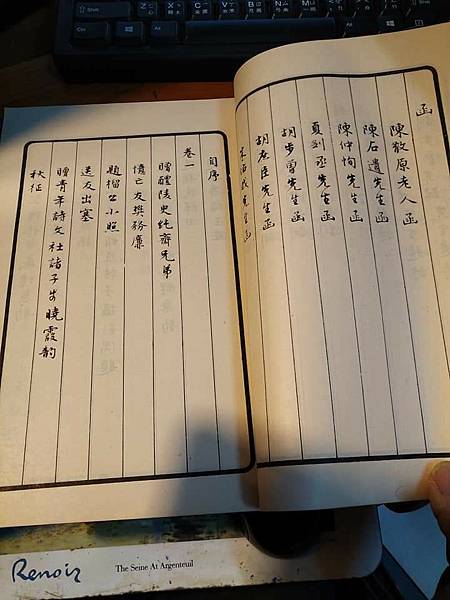 函
陳散原老人函
陳石遺先生函
陳仲恂先生函
夏劍丞先生函
胡步曾先生函
胡庶臣先生函
先生函
自序
卷一
贈醴陵史純齋兄弟
憶亡友樊務廉
題榴公小照
送友出塞
贈青年詩文社諸子步曉霞韵
秋征
Renoir
The Seine At Argenteuil